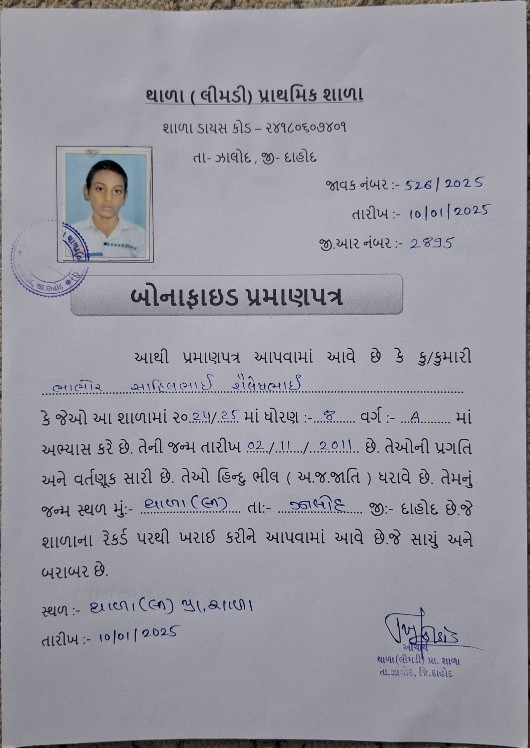 થાળા ( લીમડી) પ્રાથમિક શાળા
શાળા ડાયસ કોડ – ૨૪૧૮૦૬૦૭૪૦૧
તા- ઝાલોદ , જી- દાહોદ
જાવક નંબર :- 526/2025
તારીખ :- 10/01/2025
જી.આર નંબર :- 2895
બોનાફાઇડ પ્રમાણપત્ર
આથી પ્રમાણપત્ર આપવામાં આવે છે કે કુ/કુમારી
ભાભોર સાહિલભાઈ શૈલેષભાઈ
કે જેઓ આ શાળામાં ૨૦ 24/25 માં ધોરણ :- 8 વર્ગ :- A માં
અભ્યાસ કરે છે. તેની જન્મ તારીખ 02/11/2011 છે. તેઓની પ્રગતિ
અને વર્તણૂક સારી છે. તેઓ હિન્દુ ભીલ ( અ.જ.જાતિ ) ધરાવે છે. તેમનું
જન્મ સ્થળ મું:- થાળા(લી) તા:- ઝાલોદ જી:- દાહોદ છે.જે
શાળાના રેકર્ડ પરથી ખરાઈ કરીને આપવામાં આવે છે.જે સાચું અને
બરાબર છે.
સ્થળ :- થાળા(લી) પ્રા. શાળા
તારીખ :- 10/01/2025
આચાર્ય
થાળા(લીમડી) પ્રા. શાળા
તા.ઝાલોદ, જિ.દાહોદ